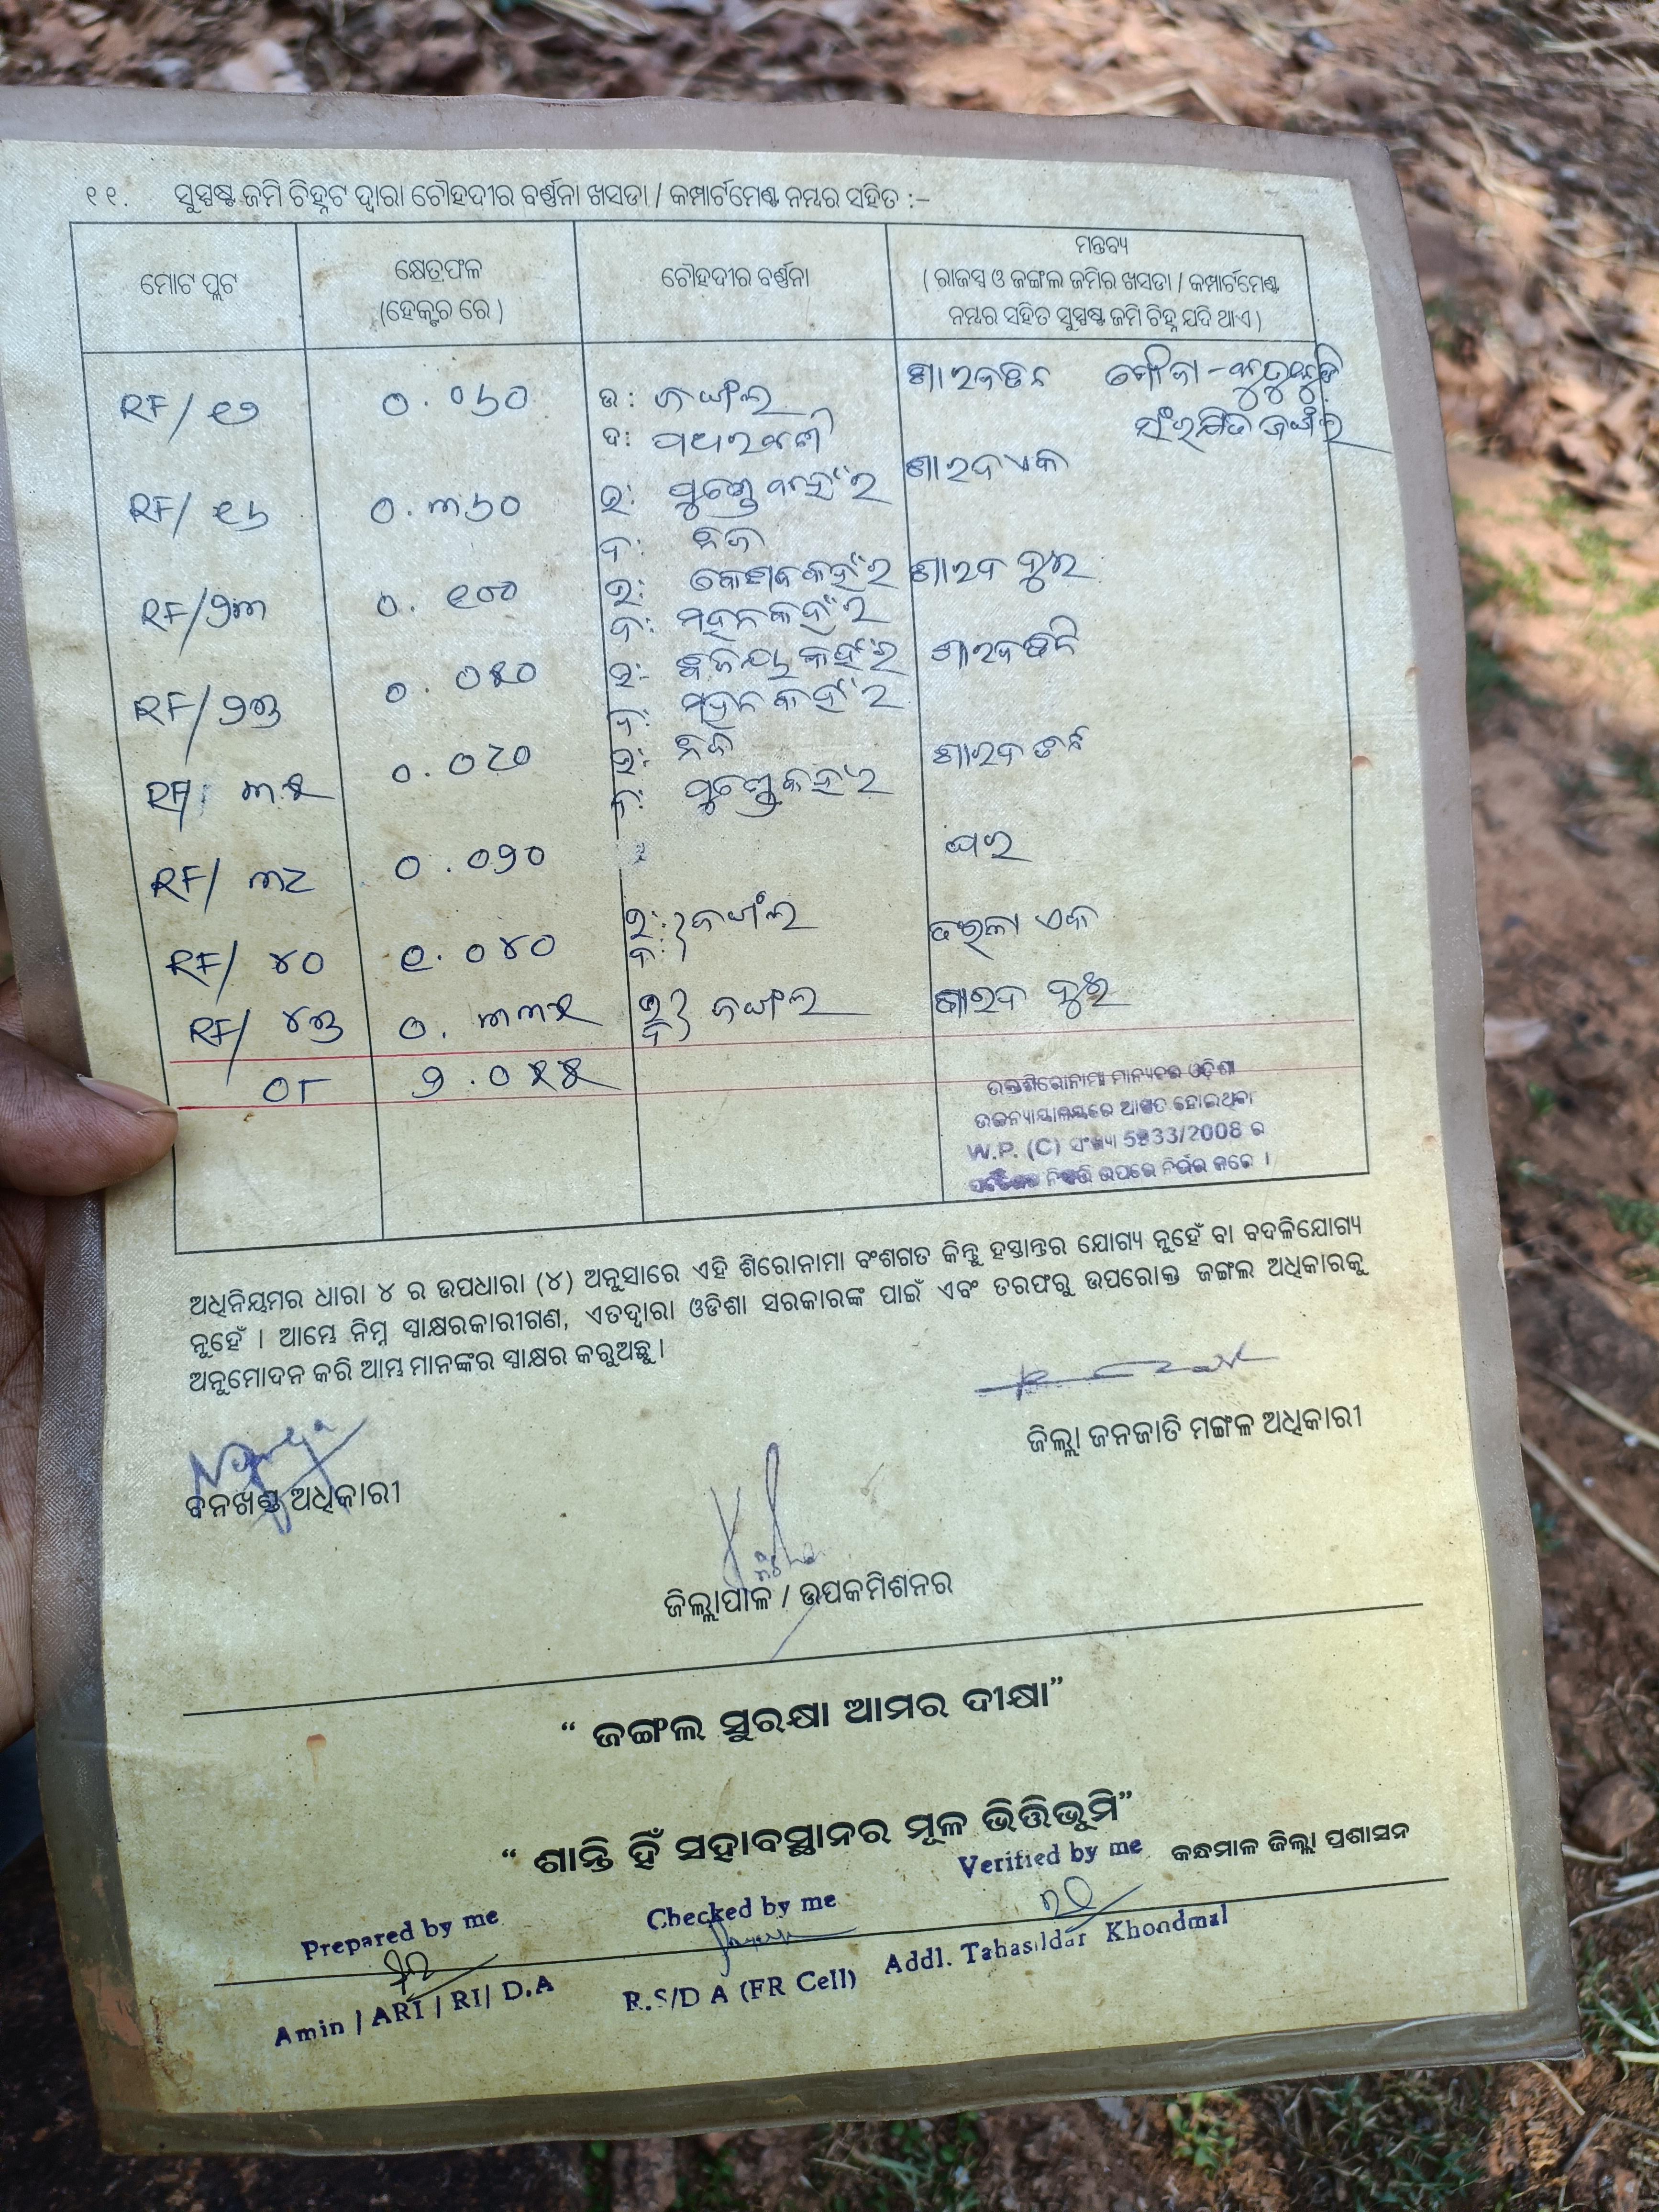 ୧୧. ସୁସ୍ପଷ୍ଟ ଜମି ଚିହ୍ନଟ ଦ୍ୱାରା ଚୌହଦୀର ବର୍ଣ୍ଣନା ଖସଡା / କମ୍ପାର୍ଟମେଣ୍ଟ ନମ୍ଭର ସହିତ :–
ମୋଟ ପ୍ଲଟ
କ୍ଷେତ୍ରଫଳ
(ହେକ୍ଟର ରେ)
ଚୌହଦୀର ବର୍ଣ୍ଣନା
ମନ୍ତବ୍ୟ
( ରାଜସ୍ୱ ଓ ଜଙ୍ଗଲ ଜମିର ଖସଡା / କମ୍ପାର୍ଟମେଣ୍ଟ
ନମ୍ଭର ସହିତ ସୁସ୍ପଷ୍ଟ ଜମି ଚିହ୍ନ ଯଦି ଥାଏ )
RF/ ୧୭ ୦.୦୬୦ ଉ: ଜଙ୍ଗଲ ଶାରଦତିନ ମୌଜା -
ଦ: ସଂରକ୍ଷିତ ଜଙ୍ଗଲ
RF/ ୧୬ ୦.୩୬୦ ଉ: ଶାରଦ ଏକ
ଦ: ନିଜ
RF/ ୨୩ ୦.୧୦୦ ଉ: କେଶବ କହଁର ଶାରଦ ଦୁଇ
ଦ: ମହନ କହଁର
RF/ ୨୩ ୦.୦୫୦ ଉ: କହଁର ଶାରଦତିନି
ଦ: ମହନ କହଁର
RF/ ୩୫ ୦.୦୮୦ ଉ: ନିଜ ଶାରଦ ତିନି
ଦ: କହଁର
RF/ ୩୮ ୦.୦୨୦ ଘର
RF/ ୪୦ ୧.୦୪୦ ଉ: ଦ: } ଜଙ୍ଗଲ ଏକ
RF/ ୪୩ ୦.୩୩୫ ଉ ଦ } ଜଙ୍ଗଲ ଶାରଦ ଦୁଇ
୦୮ ୨.୦୪୫
ଉକ୍ତଶିରୋନାମା ମାନ୍ୟବର ଓଡ଼ିଶା
ଉଚ୍ଚନ୍ୟାୟାଳୟରେ ଆଗତ ହୋଇଥିବା
W.P. (C) ସଂଖ୍ୟା 5933/2008 ର
ନିଷ୍ପତ୍ତି ଉପରେ ନିର୍ଭର କରେ ।
ଅଧିନିୟମର ଧାରା ୪ ର ଉପଧାରା (୪) ଅନୁସାରେ ଏହି ଶିରୋନାମା ବଂଶଗତ କିନ୍ତୁ ହସ୍ତାନ୍ତର ଯୋଗ୍ୟ ନୁହେଁ ବା ବଦଳିଯୋଗ୍ୟ
ନୁହେଁ । ଆମ୍ଭେ ନିମ୍ନ ସ୍ୱାକ୍ଷରକାରୀଗଣ, ଏତଦ୍ୱାରା ଓଡିଶା ସରକାରଙ୍କ ପାଇଁ ଏବଂ ତରଫରୁ ଉପରୋକ୍ତ ଜଙ୍ଗଲ ଅଧିକାରକୁ
ଅନୁମୋଦନ କରି ଆମ୍ଭ ମାନଙ୍କର ସ୍ୱାକ୍ଷର କରୁଅଛୁ ।
ଜିଲ୍ଲା ଜନଜାତି ମଙ୍ଗଳ ଅଧିକାରୀ
ବନଖଣ୍ଡ ଅଧିକାରୀ
ଜିଲ୍ଲାପାଳ / ଉପକମିଶନର
“ ଜଙ୍ଗଲ ସୁରକ୍ଷା ଆମର ଦୀକ୍ଷା”
“ ଶାନ୍ତି ହିଁ ସହାବସ୍ଥାନର ମୂଳ ଭିତ୍ତିଭୂମି”
କନ୍ଧମାଳ ଜିଲ୍ଲା ପ୍ରଶାସନ
Prepared by me Checked by me Verified by me
Amin / ARI / RI/ D.A R.S/D A (FR Cell) Addl. Tahasildar Khondmal